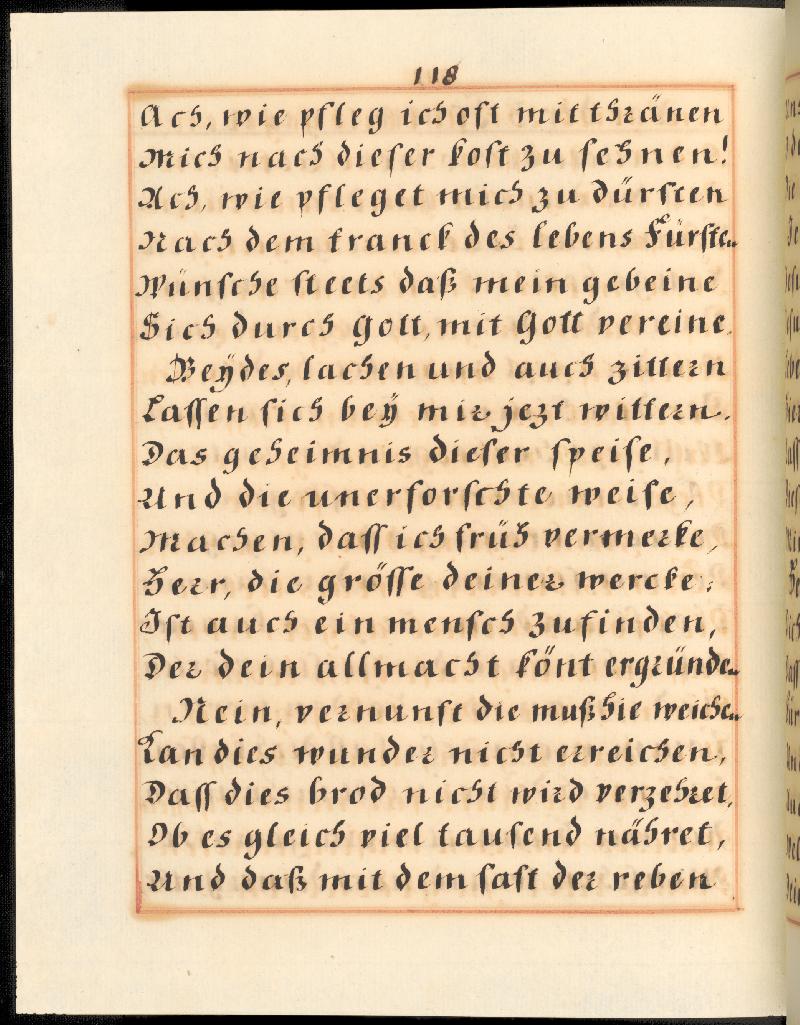 118
Ach, wie pfleg ich oft mit thränen
Mich nach dieser kost zu sehnen!
Ach, wie pfleget mich zu dürsten
Nach dem tranck des lebens Fürste..
Wünsche steets daß mein gebeine
Sich durch Gott, mit Gott vereine.
Beÿdes, lachen und auch zittern
Lassen sich beÿ mir jezt wittern.
Das geheimnis dieser speise,
Und die unerforschte weise,
Machen, dass ich früh vermerke,
Herr, die grösse deiner wercke;
Ist auch ein mensch zufinden,
Der dein allmacht könt ergründe..
Nein, vernunft die muß hie weiche..
Kan dies wunder nicht erreichen,
Dass dies brod nicht wird verzehret,
Ob es gleich viel tausend nähret,
Und daß mit dem saft der reben